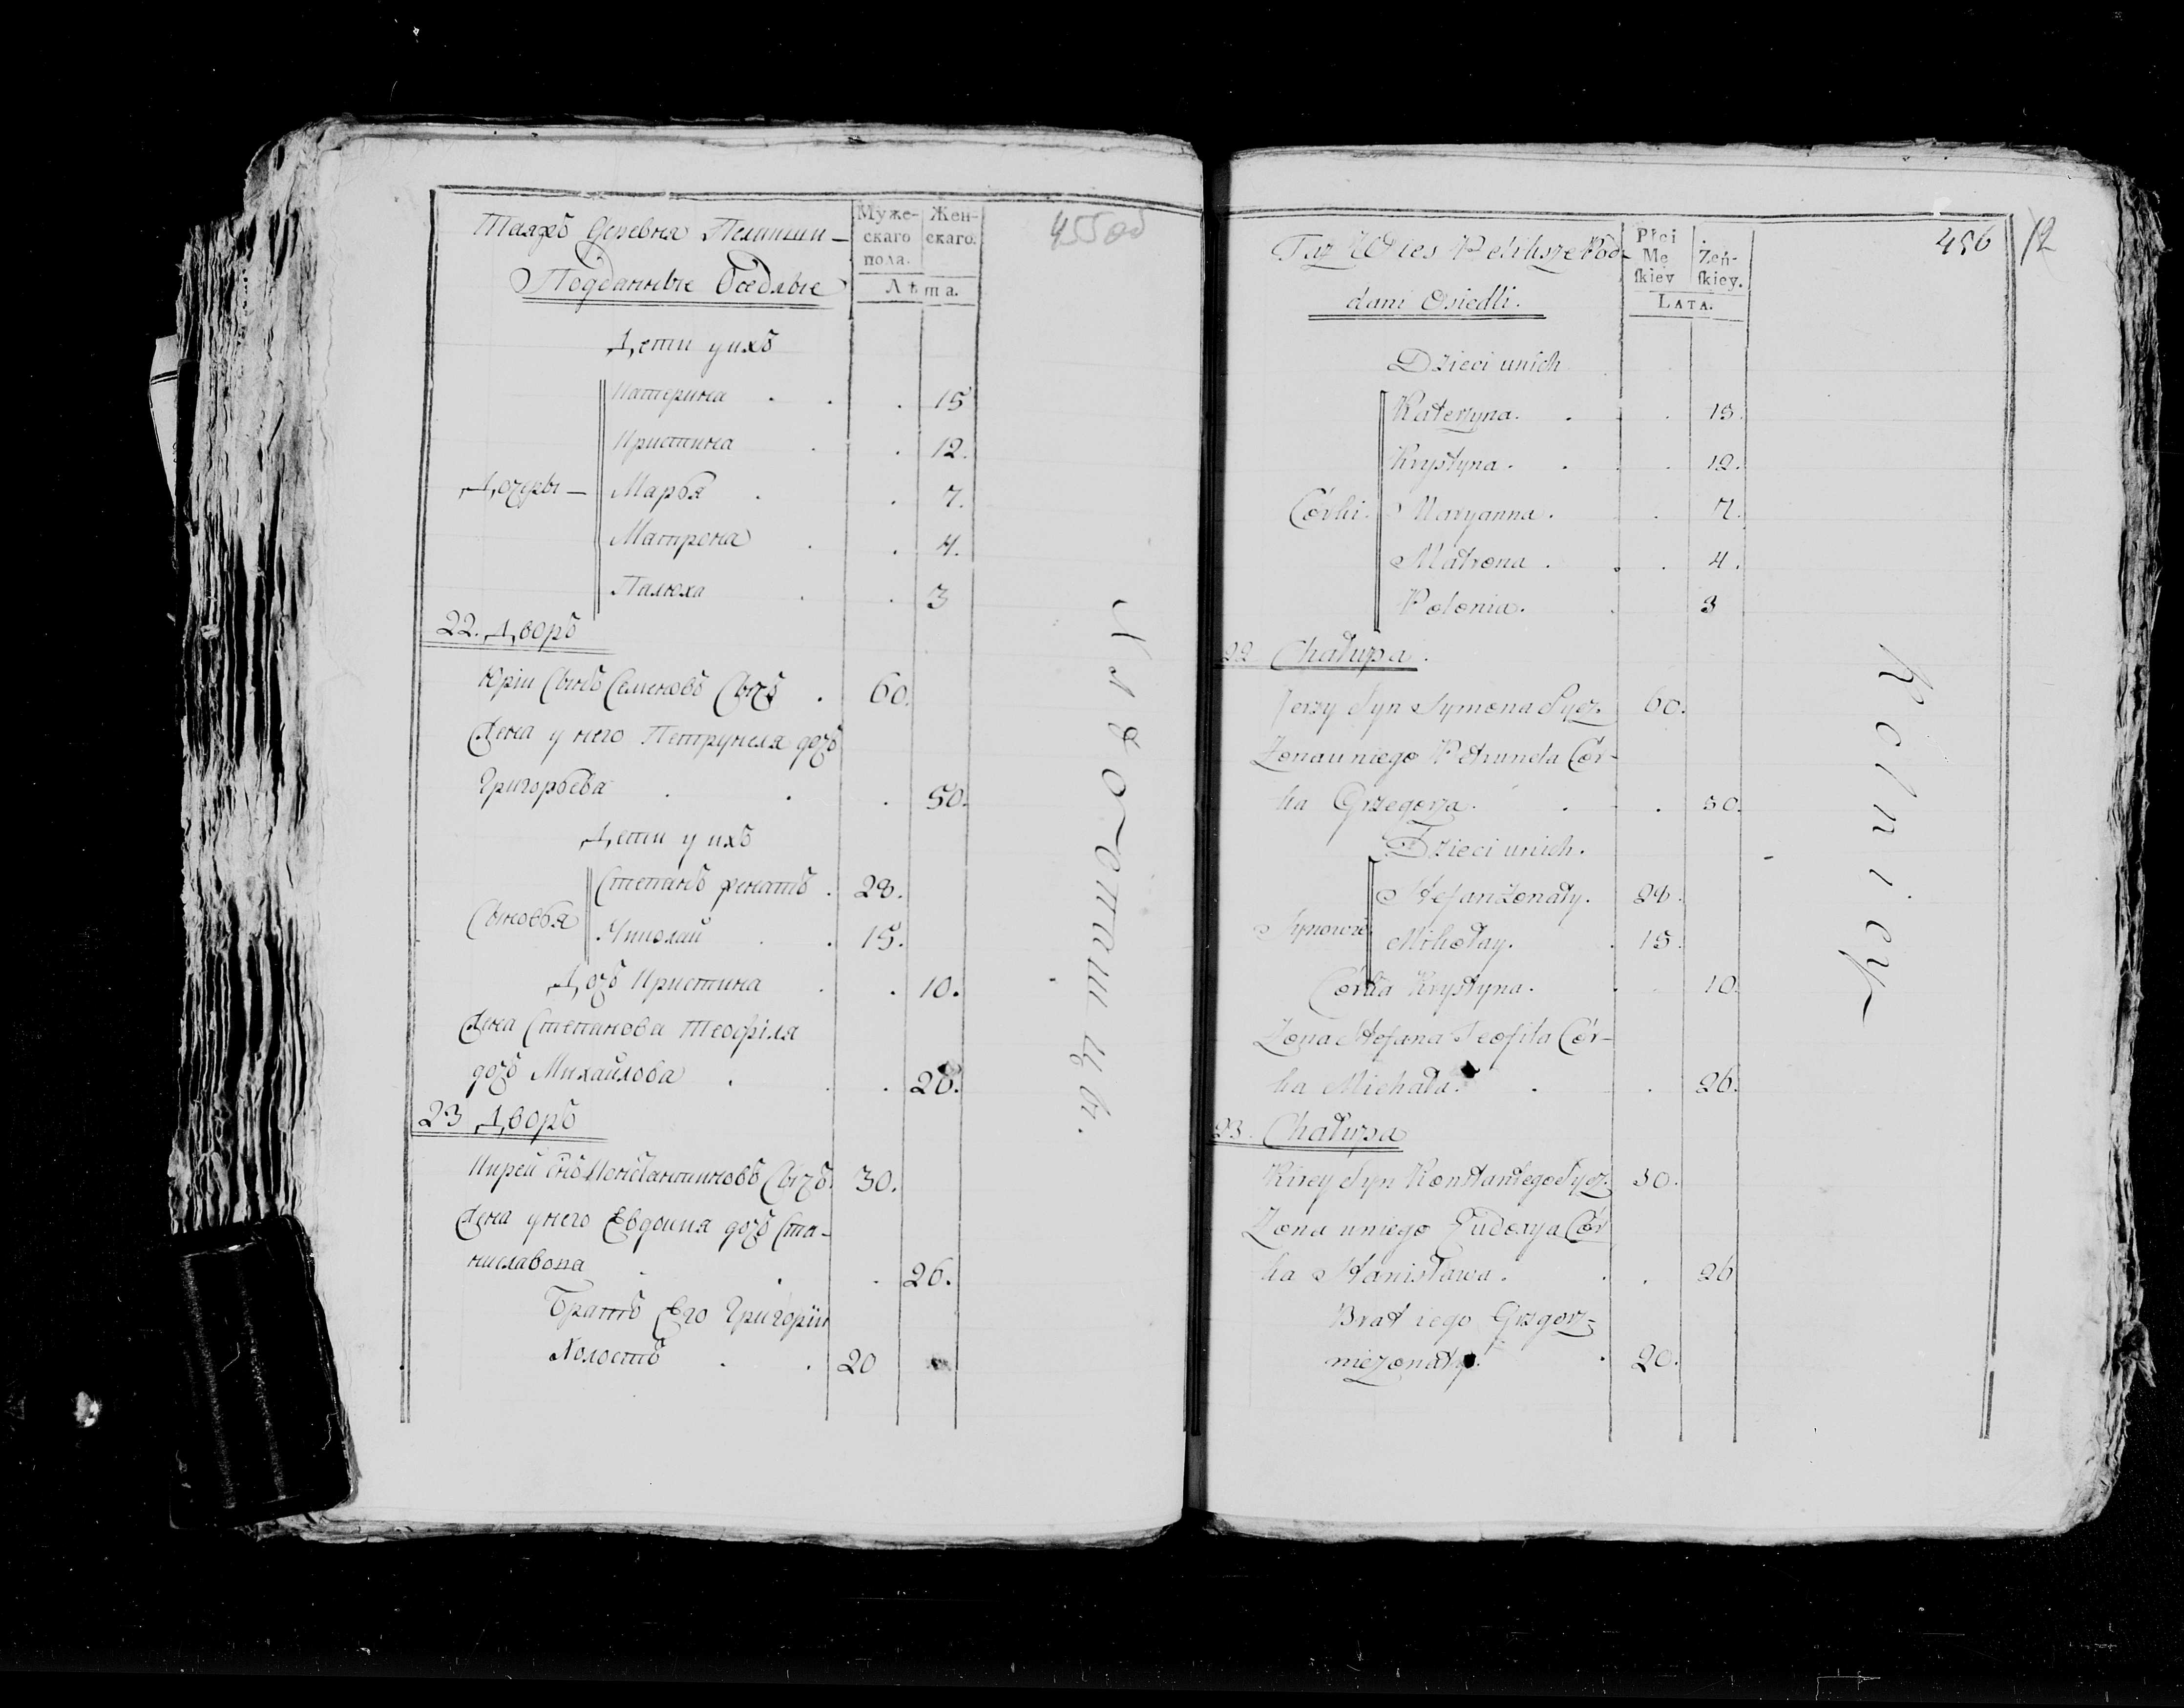 Таяжъ Деревня Пелиши–
Подданные Оседлые
Муже-
скаго
пола.
Жен-
скаго.
Лѣта.
455об
Дети у ихъ
Катерина . . . 15
Кристина . . 12.
Дочери – Марья . . 7.
Матрона . . 4.
Палюха . . 3
22. Дворъ
Юрiи Сынъ Семеновъ Сычъ . 60.
Жена у него Петрунеля дочь
Григорьева . . . 50.
Дети у ихъ
Степанъ женатъ . 28.
Сыновья Николай . . 15.
Дочь Кристина . . 10.
Жена Степанова Теофiля
дочь Михайлова . . . 26.
23 Дворъ
Кирей снъ Константиновъ Сычъ. 30.
Жена у него Евдокия дочь Ста-
ниславова . . . 26.
Братъ Его Григорiи
Холостъ . . 20
Хлебопашцы.
Taz Wies Peliksze Pod-
dani Osiedli.
Płci
Mę
ſkiey
Żeń-
ſkiey.
LATA.
456 12
Dzieci unich
Katerzyna. . . 15.
Krystyna. . . 12.
Córki. Maryanna. . 7.
Matrona. . . 4.
Polonia. . 3
22 Chałupa.
Jerzy Syn Symona Sycz. 60.
Zona uniego Petrunela Cór-
ka Grzegorza. . . 50.
Dzieci unich.
Stefan Zonaty. 28.
Synowie Mikołay. . 15.
Córka Krystyna. . . 10.
Zona Stefana Teofila Cór-
ka Michała. . . 26.
23. Chałupa
Kirey Syn Konstantego Sycz. 30.
Zona uniego Eudoxya Cór
ka Stanisława. . . 26
Brat iego Grzgorz
niezonaty. . 20.
Rolnicy